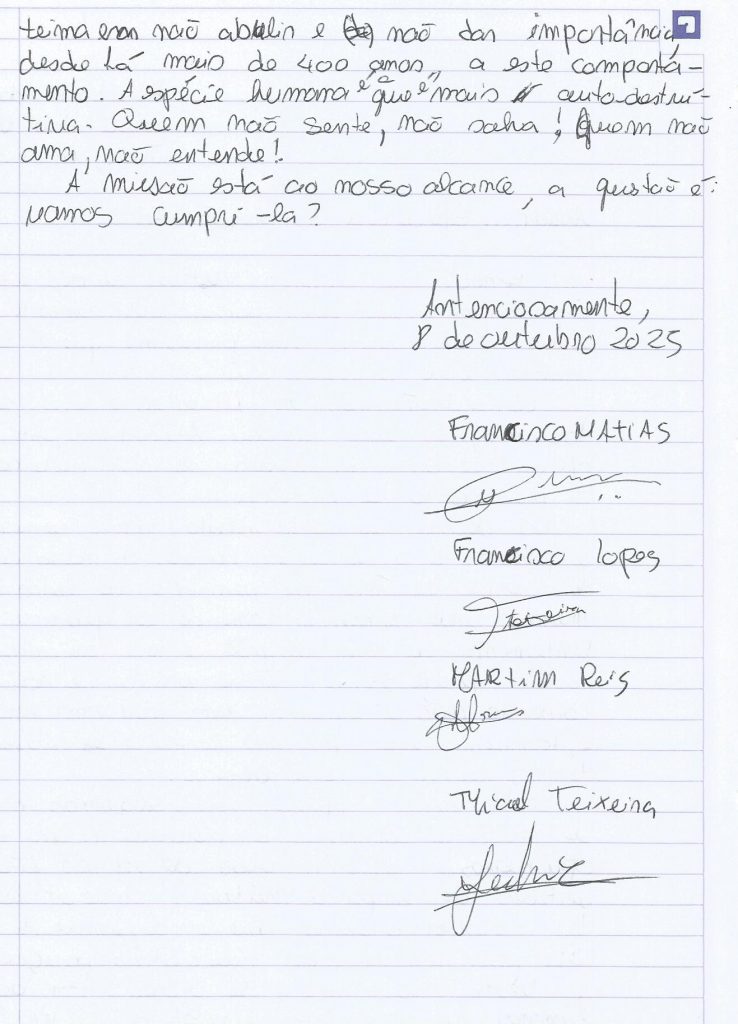 teima em não abolir e não dar importância,
desde há mais de 400 anos, a este comportá-
mento. A espécie humana é a que é mais auto-destru-
tiva. Quem não sente, não salva! Quem não
ama, não entende!
A missão está ao nosso alcance, a questão é:
vamos cumpri-la?
Antenciosamente,
8 de outubro 2025
Francisco MATIAS
Francisco Lopes
Teixeira
MARtim Reis
Teixeira